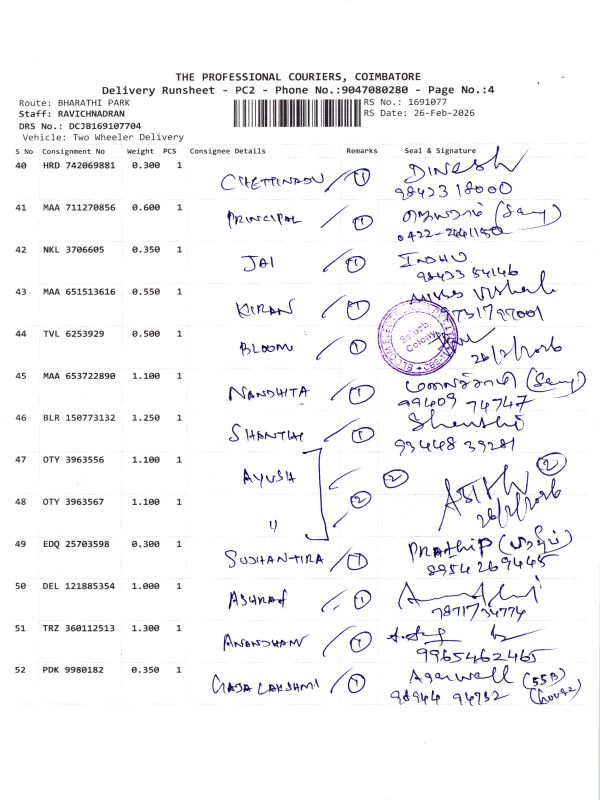 THE PROFESSIONAL COURIERS, COIMBATORE
Delivery Runsheet - PC2 - Phone No.:9047080280 - Page No.:4
Route: BHARATHI PARK
RS No.: 1691077
Staff: RAVICHNADRAN
RS Date: 26-Feb-2026
DRS No.: DCJB169107704
Vehicle: Two Wheeler Delivery
S No Consignment No Weight PCS Consignee Details Remarks Seal & Signature
40 HRD 742069881 0.300 1 CHETTINADU / 1 DINESH
9842318000
41 MAA 711270856 0.600 1 PRINCIPAL / 1
0422-2441150
42 NKL 3706605 0.350 1 JAI / 1 INDHU
98433 54146
43 MAA 651513616 0.550 1 KIRAN / 1
44 TVL 6253929 0.500 1 BLOOM / 1
Saibab Colony
26/2/2026
45 MAA 653722890 1.100 1 NANDHITA / 1
99409 74747
46 BLR 150773132 1.250 1 SHANTHI / 1
93448 39281
47 OTY 3963556 1.100 1 AYUSH 2 2
48 OTY 3963567 1.100 1 " 2
26/2/2026
49 EDQ 25703598 0.300 1 / 1 PRATHIP
8954269445
50 DEL 121885354 1.000 1 ASHRAF / 1
7871734774
51 TRZ 360112513 1.300 1 / 1
9965462465
52 PDK 9980182 0.350 1 GAJALAKSHMI / 1 Agarwall (55B)
98944 94732 (house)